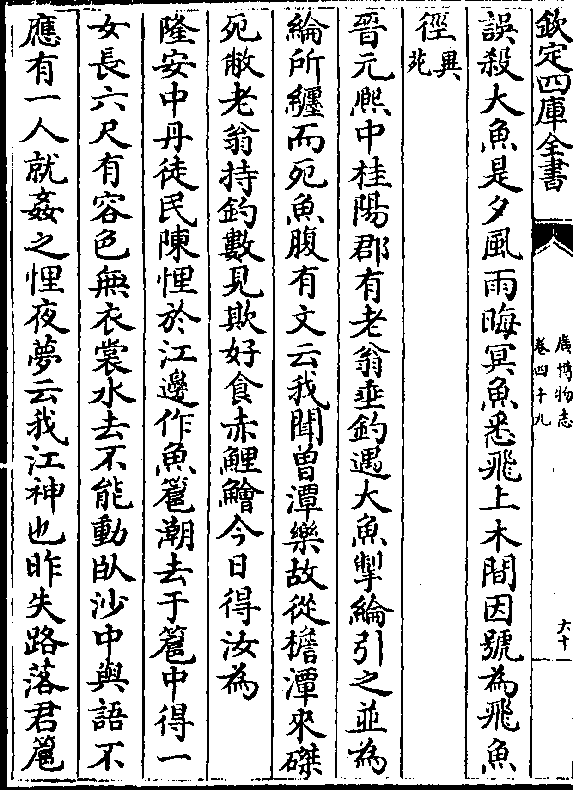 欽定四庫全書
廣博物志
卷四十九
六十
誤殺大魚是夕風雨晦冥魚悉飛上木間因號為飛魚
徑異
苑
晉元熙中桂陽郡有老翁垂釣遇大魚掣綸引之並為
綸所纏而死魚腹有文云我聞曾潭樂故從檐潭來磔
死敝老翁持釣數見欺好食赤鯉鱠今日得汝為
隆安中丹徒民陳悝於江邊作魚簄潮去于簄中得一
女長六尺有容色無衣裳水去不能動臥沙中與語不
應有一人就姦之悝夜夢云我江神也昨失路落君簄